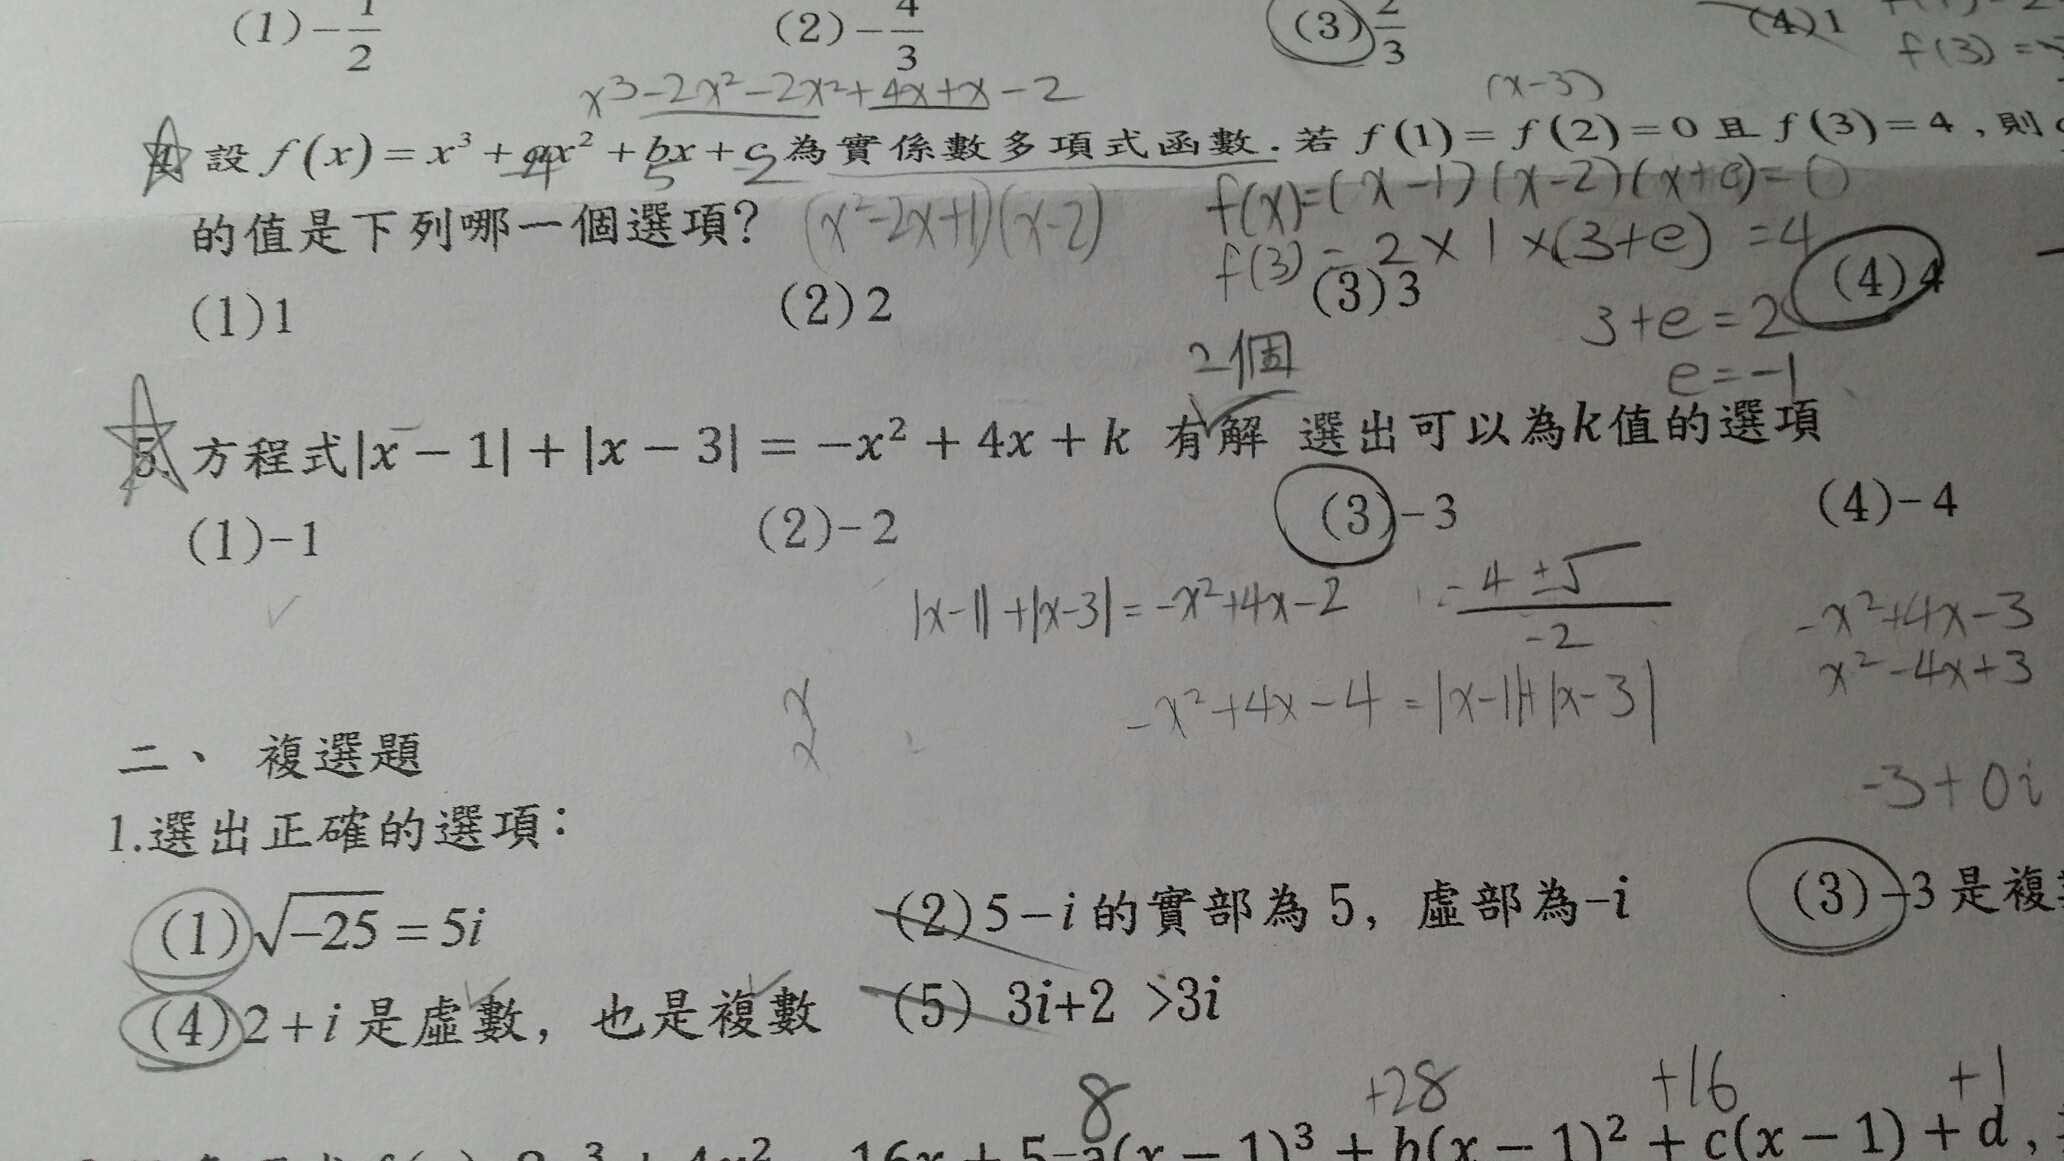 (1)-1/2 (2)-4/3 (3)2/3 (4)1
f(3)=
x³-2x²-2x²+4x+x-2 (x-3)
4. 設 f(x)=x³+ax²+bx+c為實係數多項式函數.若 f(1)=f(2)=0 且 f(3)=4,則
-4 5 -2
f(x)=(x-1)(x-2)(x+e)=0
的值是下列哪一個選項? (x²-2x+1)(x-2)
f(3)=2×1×(3+e)=4
(1)1 (2)2 (3)3 (4)4
3+e=2
2個
e=-1
5. 方程式|x-1|+|x-3|=-x²+4x+k 有解 選出可以為k值的選項
(1)-1 (2)-2 (3)-3 (4)-4
|x-1|+|x-3|=-x²+4x-2
-4±√
-2
-x²+4x-3
x²-4x+3
-x²+4x-4=|x-1|+|x-3|
二、 複選題
-3+0i
1.選出正確的選項:
(1)√-25=5i (2)5-i的實部為5, 虛部為-i (3)-3是複
(4)2+i是虛數, 也是複數 (5) 3i+2 >3i
8 +28 +16 +1
-16x+5=a(x-1)³+b(x-1)²+c(x-1)+d,